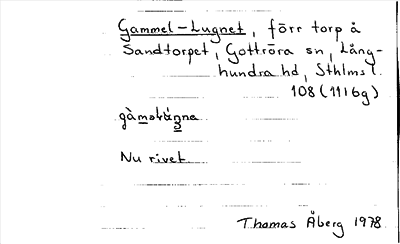 Gammel-Lugnet, förr torp å
Sandtorpet, Gottröra sn, Lång-
hundra hd, Sthlms l.
108 (11I6g)
Nu rivet
Thomas Åberg 1978